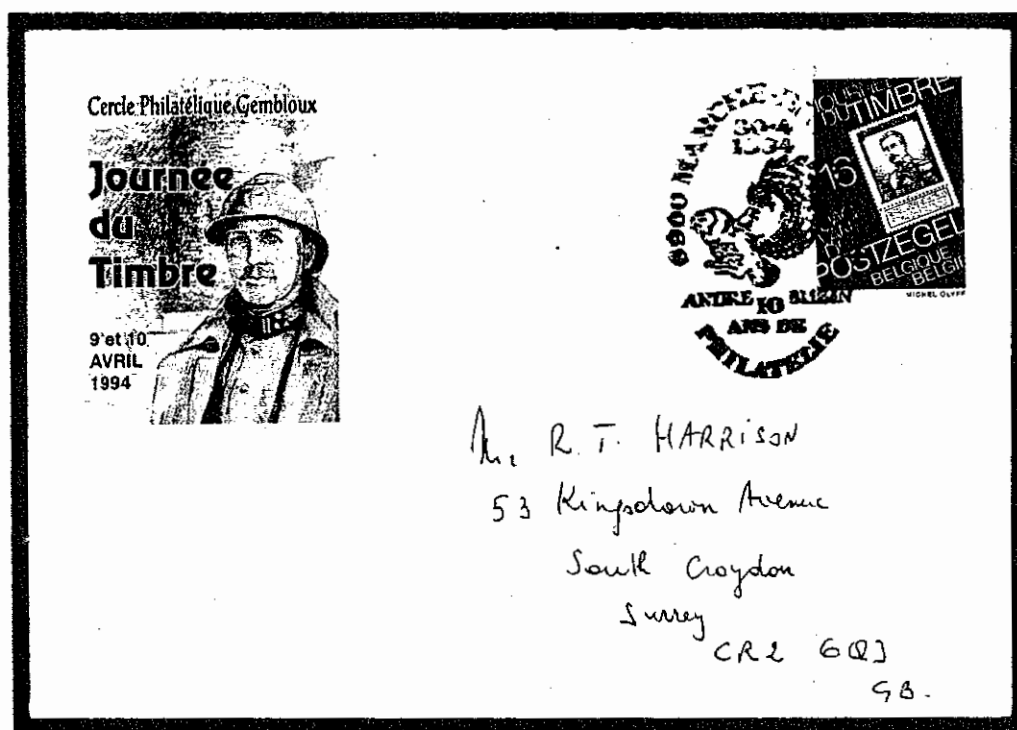 Cercle Philatélique Gembloux
Journée
du
Timbre
9 et 10
AVRIL
1994
6900 MARCHE-
30-4
1994
ANDRE BUZIN
10
ANS DE
PHILATELIE
DU TIMBRE
16
POSTZEGEL
BELGIQUE
BELGIË
MICHEL OLYFF
Mr R.T. HARRISON
53 Kingsdown Avenue
South Croydon
Surrey
CR2 6QJ
GB.